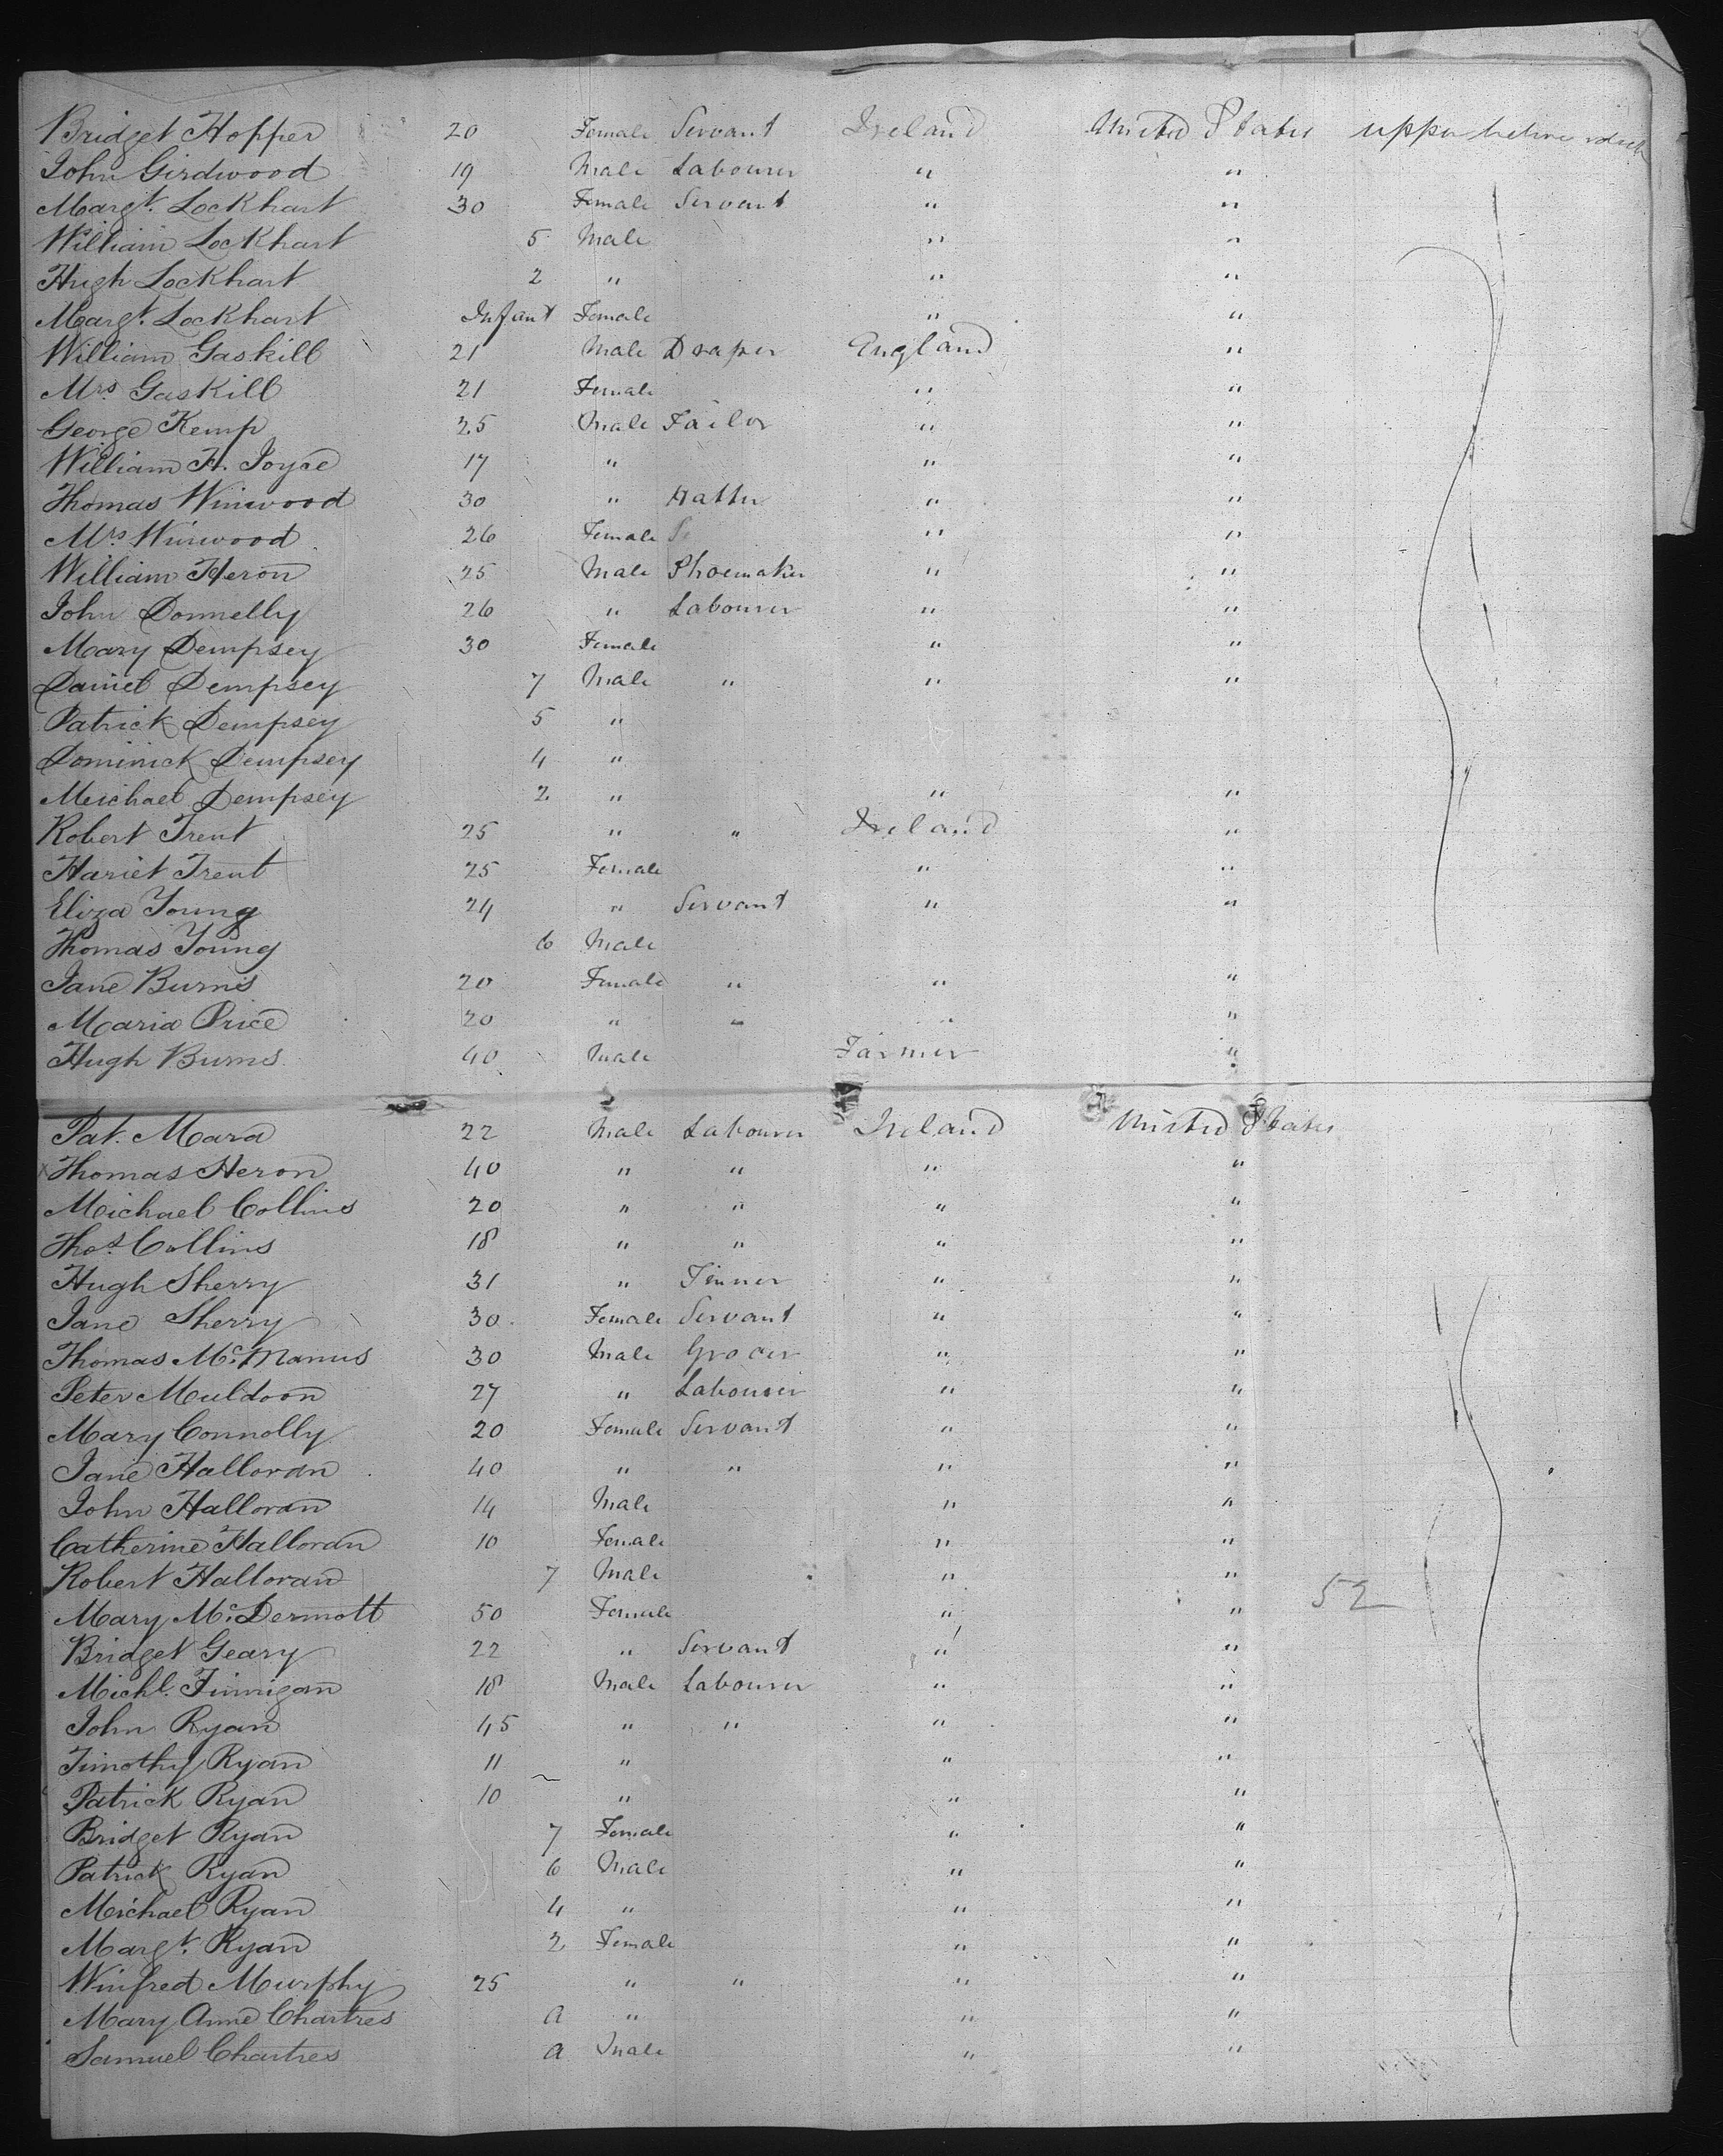 Bridget Hopper 20 Female Servant Ireland United States upper between deck
John Girdwood 19 Male Labourer " "
Margt. Lockhart 30 Female Servant " "
William Lockhart 5 Male " "
Hugh Lockhart 2 " " "
Margt. Lockhart Infant Female " "
William Gaskill 21 Male Draper England "
Mrs. Gaskill 21 Female " "
George Kemp 25 Male Tailor " "
William H. Joyce 17 " " "
Thomas Winwood 30 " Hatter " "
Mrs. Winwood 26 Female Se " "
William Heron 25 Male Shoemaker " "
John Donnelly 26 " Labourer " "
Mary Dempsey 30 Female " "
Daniel Dempsey 7 Male " " "
Patrick Dempsey 5 "
Dominick Dempsey 4 "
Meichael Dempsey 2 " " "
Robert Trent 25 " " Ireland "
Hariet Trent 25 Female " "
Eliza Young 24 " Servant " "
Thomas Young 6 Male
Jane Burns 20 Female " " "
Maria Price 20 " " " "
Hugh Burns 40 Male Farmer "
Pat. Mara 22 Male Labourer Ireland United States
Thomas Heron 40 " " " "
Michael Collins 20 " " " "
Thos. Collins 18 " " " "
Hugh Sherry 31 " Tinner " "
Jane Sherry 30 Female Servant " "
Thomas McManus 30 Male Grocer " "
Peter Muldoon 27 " Labourer " "
Mary Connolly 20 Female Servant " "
Jane Halloran 40 " " " "
John Halloran 14 Male " "
Catherine Halloran 10 Female " "
Robert Halloran 7 Male " " 52
Mary McDermott 50 Female " "
Bridget Geary 22 " Servant " "
Michl. Finnigan 18 Male Labourer " "
John Ryan 45 " " " "
Timothy Ryan 11 " " "
Patrick Ryan 10 " " "
Bridget Ryan 7 Female " "
Patrick Ryan 6 Male " "
Michael Ryan 4 " " "
Margt. Ryan 2 Female " "
Winfred Murphy 25 " " " "
Mary Anne Chartres a " " "
Samuel Chartres a Male " "